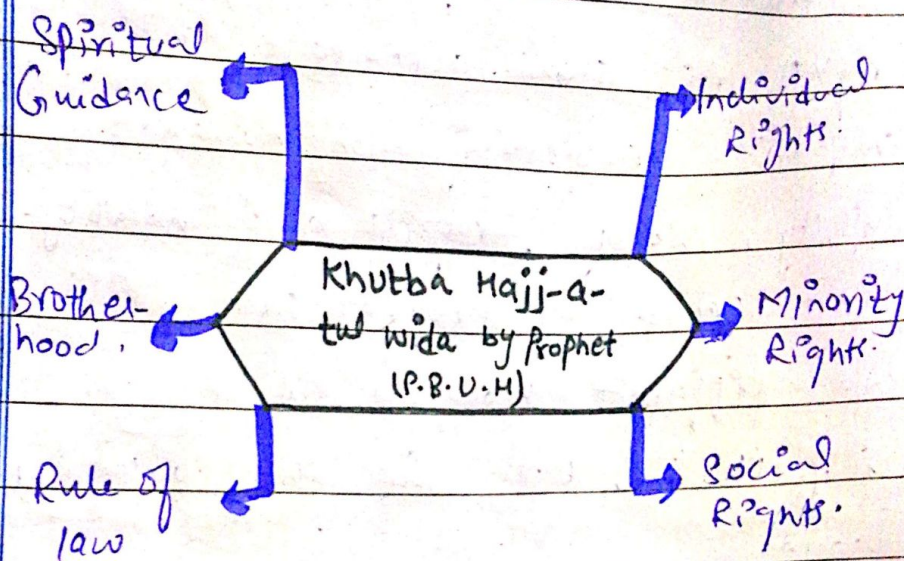 Spiritual
Guidance
Individual
Rights.
Khutba Hajj-a-
tul wida by Prophet
(P.B.U.H)
Brother-
hood.
Minority
Rights.
Rule of
law
Social
Rights.